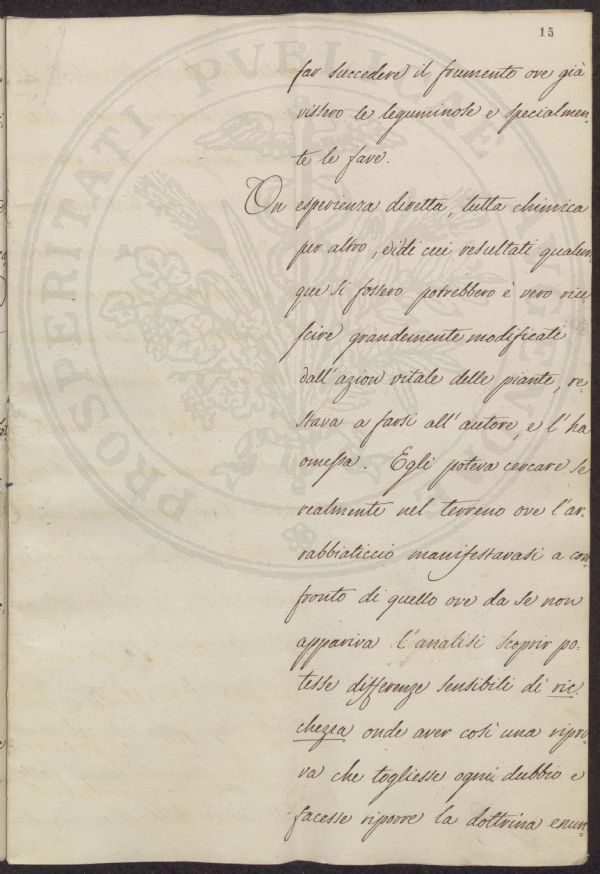 15
far succedere il frumento ove già
vissero le leguminose e specialmen-
te le fave.
Un esperienza diretta, tutta chimica
per altro, e di cui resultati qualun-
que si fossero potrebbero è vero riu
scire grandemente modificati
dall'azion vitale delle piante, re-
stava a farsi all'autore, e l'ha
omessa. Egli poteva cercare se
realmente nel terreno ove l'ar-
rabbiaticcio manifestavasi a con
fronto di quello ove da se non
appariva l'analisi scoprir po-
tesse differenze sensibili di ric-
chezza onde aver così una ripro
va che togliesse ogni dubbio e
facesse riporre la dottrina enun-
PROSPERITATI PVBLICAE AVGENDAE